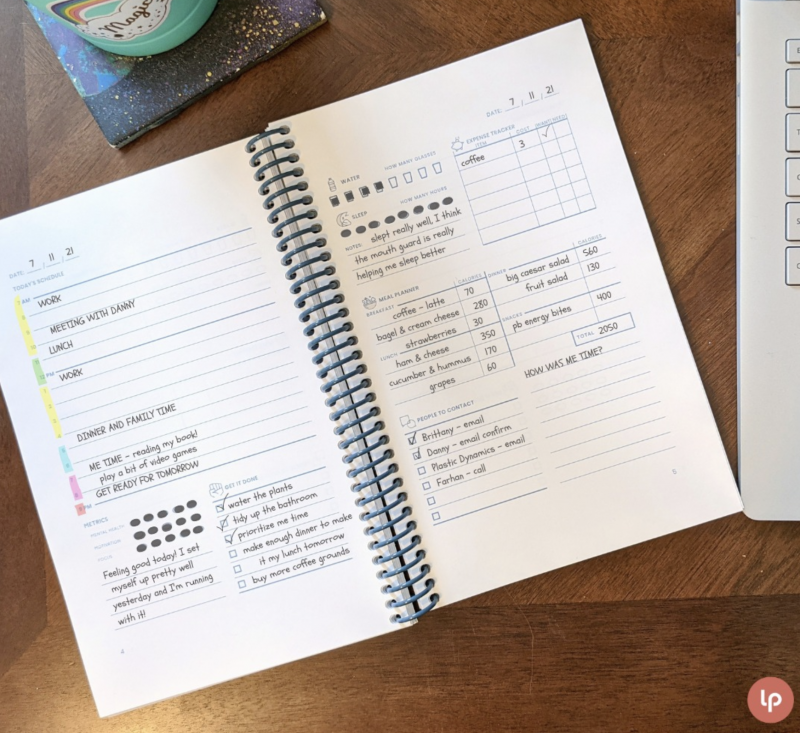 Magic
DATE: 7 / 11 / 21
TODAY'S SCHEDULE
AM WORK
MEETING WITH DANNY
LUNCH
PM WORK
DINNER AND FAMILY TIME
ME TIME - reading my book!
play a bit of video games
GET READY FOR TOMORROW
METRICS
MENTAL HEALTH
Feeling good today! I set
myself up pretty well
yesterday and I'm running
with it!
GET IT DONE
water the plants
tidy up the bathroom
prioritize me time
make enough dinner to make
it my lunch tomorrow
buy more coffee grounds
4
DATE: 7 / 11 / 21
WATER
HOW MANY GLASSES
SLEEP
HOW MANY HOURS
NOTES: slept really well, I think
the mouth guard is really
helping me sleep better
EXPENSE TRACKER
ITEM COST
coffee 3
MEAL PLANNER
CALORIES
BREAKFAST coffee - latte 70
bagel & cream cheese 280
strawberries 30
LUNCH ham & cheese 350
cucumber & hummus 170
grapes 60
CALORIES
DINNER big caesar salad 560
fruit salad 130
SNACKS pb energy bites 400
TOTAL 2050
PEOPLE TO CONTACT
Brittany - email
Danny - email confirm
Plastic Dynamics - email
Farhan - call
HOW WAS ME TIME?
5
lp